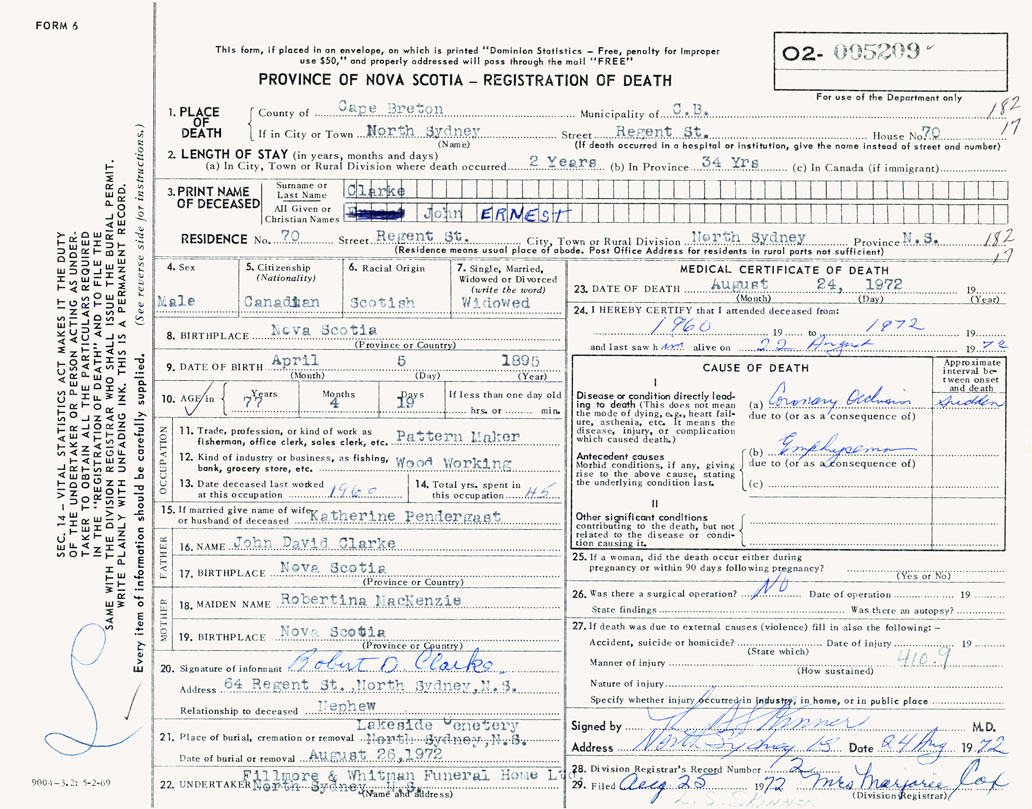 FORM 6
This form, if placed in an envelope, on which is printed "Dominion Statistics – Free, penalty for Improper
use $50," and properly addressed will pass through the mail "FREE"
PROVINCE OF NOVA SCOTIA – REGISTRATION OF DEATH
02- 005209
For use of the Department only
182
17
1. PLACE OF DEATH
County of Cape Breton Municipality of C.B.
If in City or Town North Sydney Street Regent St. House No. 70
(Name) (If death occurred in a hospital or institution, give the name instead of street and number)
2. LENGTH OF STAY (in years, months and days)
(a) In City, Town or Rural Division where death occurred 2 Years (b) In Province 34 Yrs (c) In Canada (if immigrant)
3. PRINT NAME OF DECEASED
Surname or Last Name Clarke
All Given or Christian Names John ERNEST
RESIDENCE No. 70 Street Regent St. City, Town or Rural Division North Sydney Province N.S.
(Residence means usual place of abode. Post Office Address for residents in rural parts not sufficient)
182
17
4. Sex
Male
5. Citizenship (Nationality)
Canadian
6. Racial Origin
Scotish
7. Single, Married, Widowed or Divorced (write the word)
Widowed
8. BIRTHPLACE Nova Scotia
(Province or Country)
9. DATE OF BIRTH April 5 1895
(Month) (Day) (Year)
10. AGE in Years Months Days If less than one day old
77 4 19 hrs. or min.
OCCUPATION
11. Trade, profession, or kind of work as
fisherman, office clerk, sales clerk, etc. Pattern Maker
12. Kind of industry or business, as fishing,
bank, grocery store, etc. Wood Working
13. Date deceased last worked
at this occupation 1960
14. Total yrs. spent in
this occupation 45
15. If married give name of wife
or husband of deceased Katherine Pendergast
FATHER
16. NAME John David Clarke
17. BIRTHPLACE Nova Scotia
(Province or Country)
MOTHER
18. MAIDEN NAME Robertina MacKenzie
19. BIRTHPLACE Nova Scotia
(Province or Country)
20. Signature of informant Robert D. Clarke
Address 64 Regent St., North Sydney, N.S.
Relationship to deceased Nephew
Lakeside Cemetery
21. Place of burial, cremation or removal North Sydney, N.S.
Date of burial or removal August 26, 1972
Fillmore & Whitman Funeral Home Ltd.
22. UNDERTAKER North Sydney N.S.
(Name and address)
MEDICAL CERTIFICATE OF DEATH
23. DATE OF DEATH August 24, 1972 19
(Month) (Day) (Year)
24. I HEREBY CERTIFY that I attended deceased from:
1960 19 to 1972 19
and last saw him alive on 22 August 19 72
CAUSE OF DEATH
Approximate interval between onset and death
I
Disease or condition directly leading to death (This does not mean the mode of dying, e.g., heart failure, asthenia, etc. It means the disease, injury, or complication which caused death.)
(a) Coronary Occlusion sudden
due to (or as a consequence of)
Antecedent causes
Morbid conditions, if any, giving rise to the above cause, stating the underlying condition last.
(b) Emphysema
due to (or as a consequence of)
(c)
II
Other significant conditions
contributing to the death, but not related to the disease or condition causing it.
25. If a woman, did the death occur either during
pregnancy or within 90 days following pregnancy?
(Yes or No)
26. Was there a surgical operation? No Date of operation 19
State findings Was there an autopsy?
27. If death was due to external causes (violence) fill in also the following: –
Accident, suicide or homicide? Date of injury 19
(State which)
410.9
Manner of injury
(How sustained)
Nature of injury
Specify whether injury occurred in Industry, in home, or in public place
Signed by Skinner M.D.
Address North Sydney NS Date 24 Aug 19 72
28. Division Registrar's Record Number 12
29. Filed Aug 25 1972 Mrs Marjorie Cox
(Division Registrar)
L. S. SKINNER
SEC. 14 – VITAL STATISTICS ACT MAKES IT THE DUTY
OF THE UNDERTAKER OR PERSON ACTING AS UNDER-
TAKER TO OBTAIN ALL THE PARTICULARS REQUIRED
IN THE "REGISTRATION OF DEATH" AND TO FILE THE
SAME WITH THE DIVISION REGISTRAR WHO SHALL ISSUE THE BURIAL PERMIT.
WRITE PLAINLY WITH UNFADING INK. THIS IS A PERMANENT RECORD.
Every item of information should be carefully supplied. (See reverse side for instructions.)
9004-3.2: 5-2-69